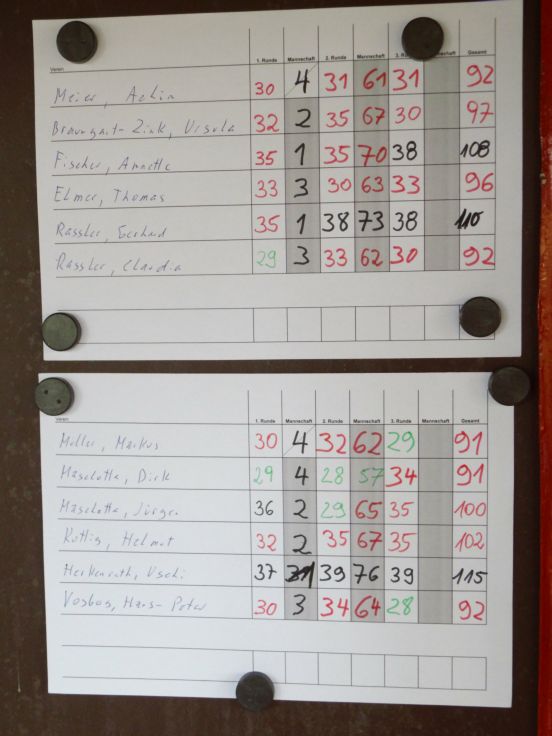 Verein 1. Runde Mannschaft 2. Runde Mannschaft 3. Gesamt
Meier, Achim 30 4 31 61 31 92
Braungart-Zink, Ursula 32 2 35 67 30 97
Fischer, Annette 35 1 35 70 38 108
Elmer, Thomas 33 3 30 63 33 96
Rässler, Gerhard 35 1 38 73 38
Rässler, Claudia 29 3 33 62 30 92
Verein 1. Runde Mannschaft 2. Runde Mannschaft 3. Runde Mannschaft Gesamt
Müller, Markus 30 4 32 62 29 91
Maselotte, Dirk 29 4 28 57 34 91
Maselotte, 36 2 29 65 35 100
Rüttig, Helmut 32 2 35 67 35 102
37 39 76 39 115
Hans-Peter 30 3 34 64 28 92